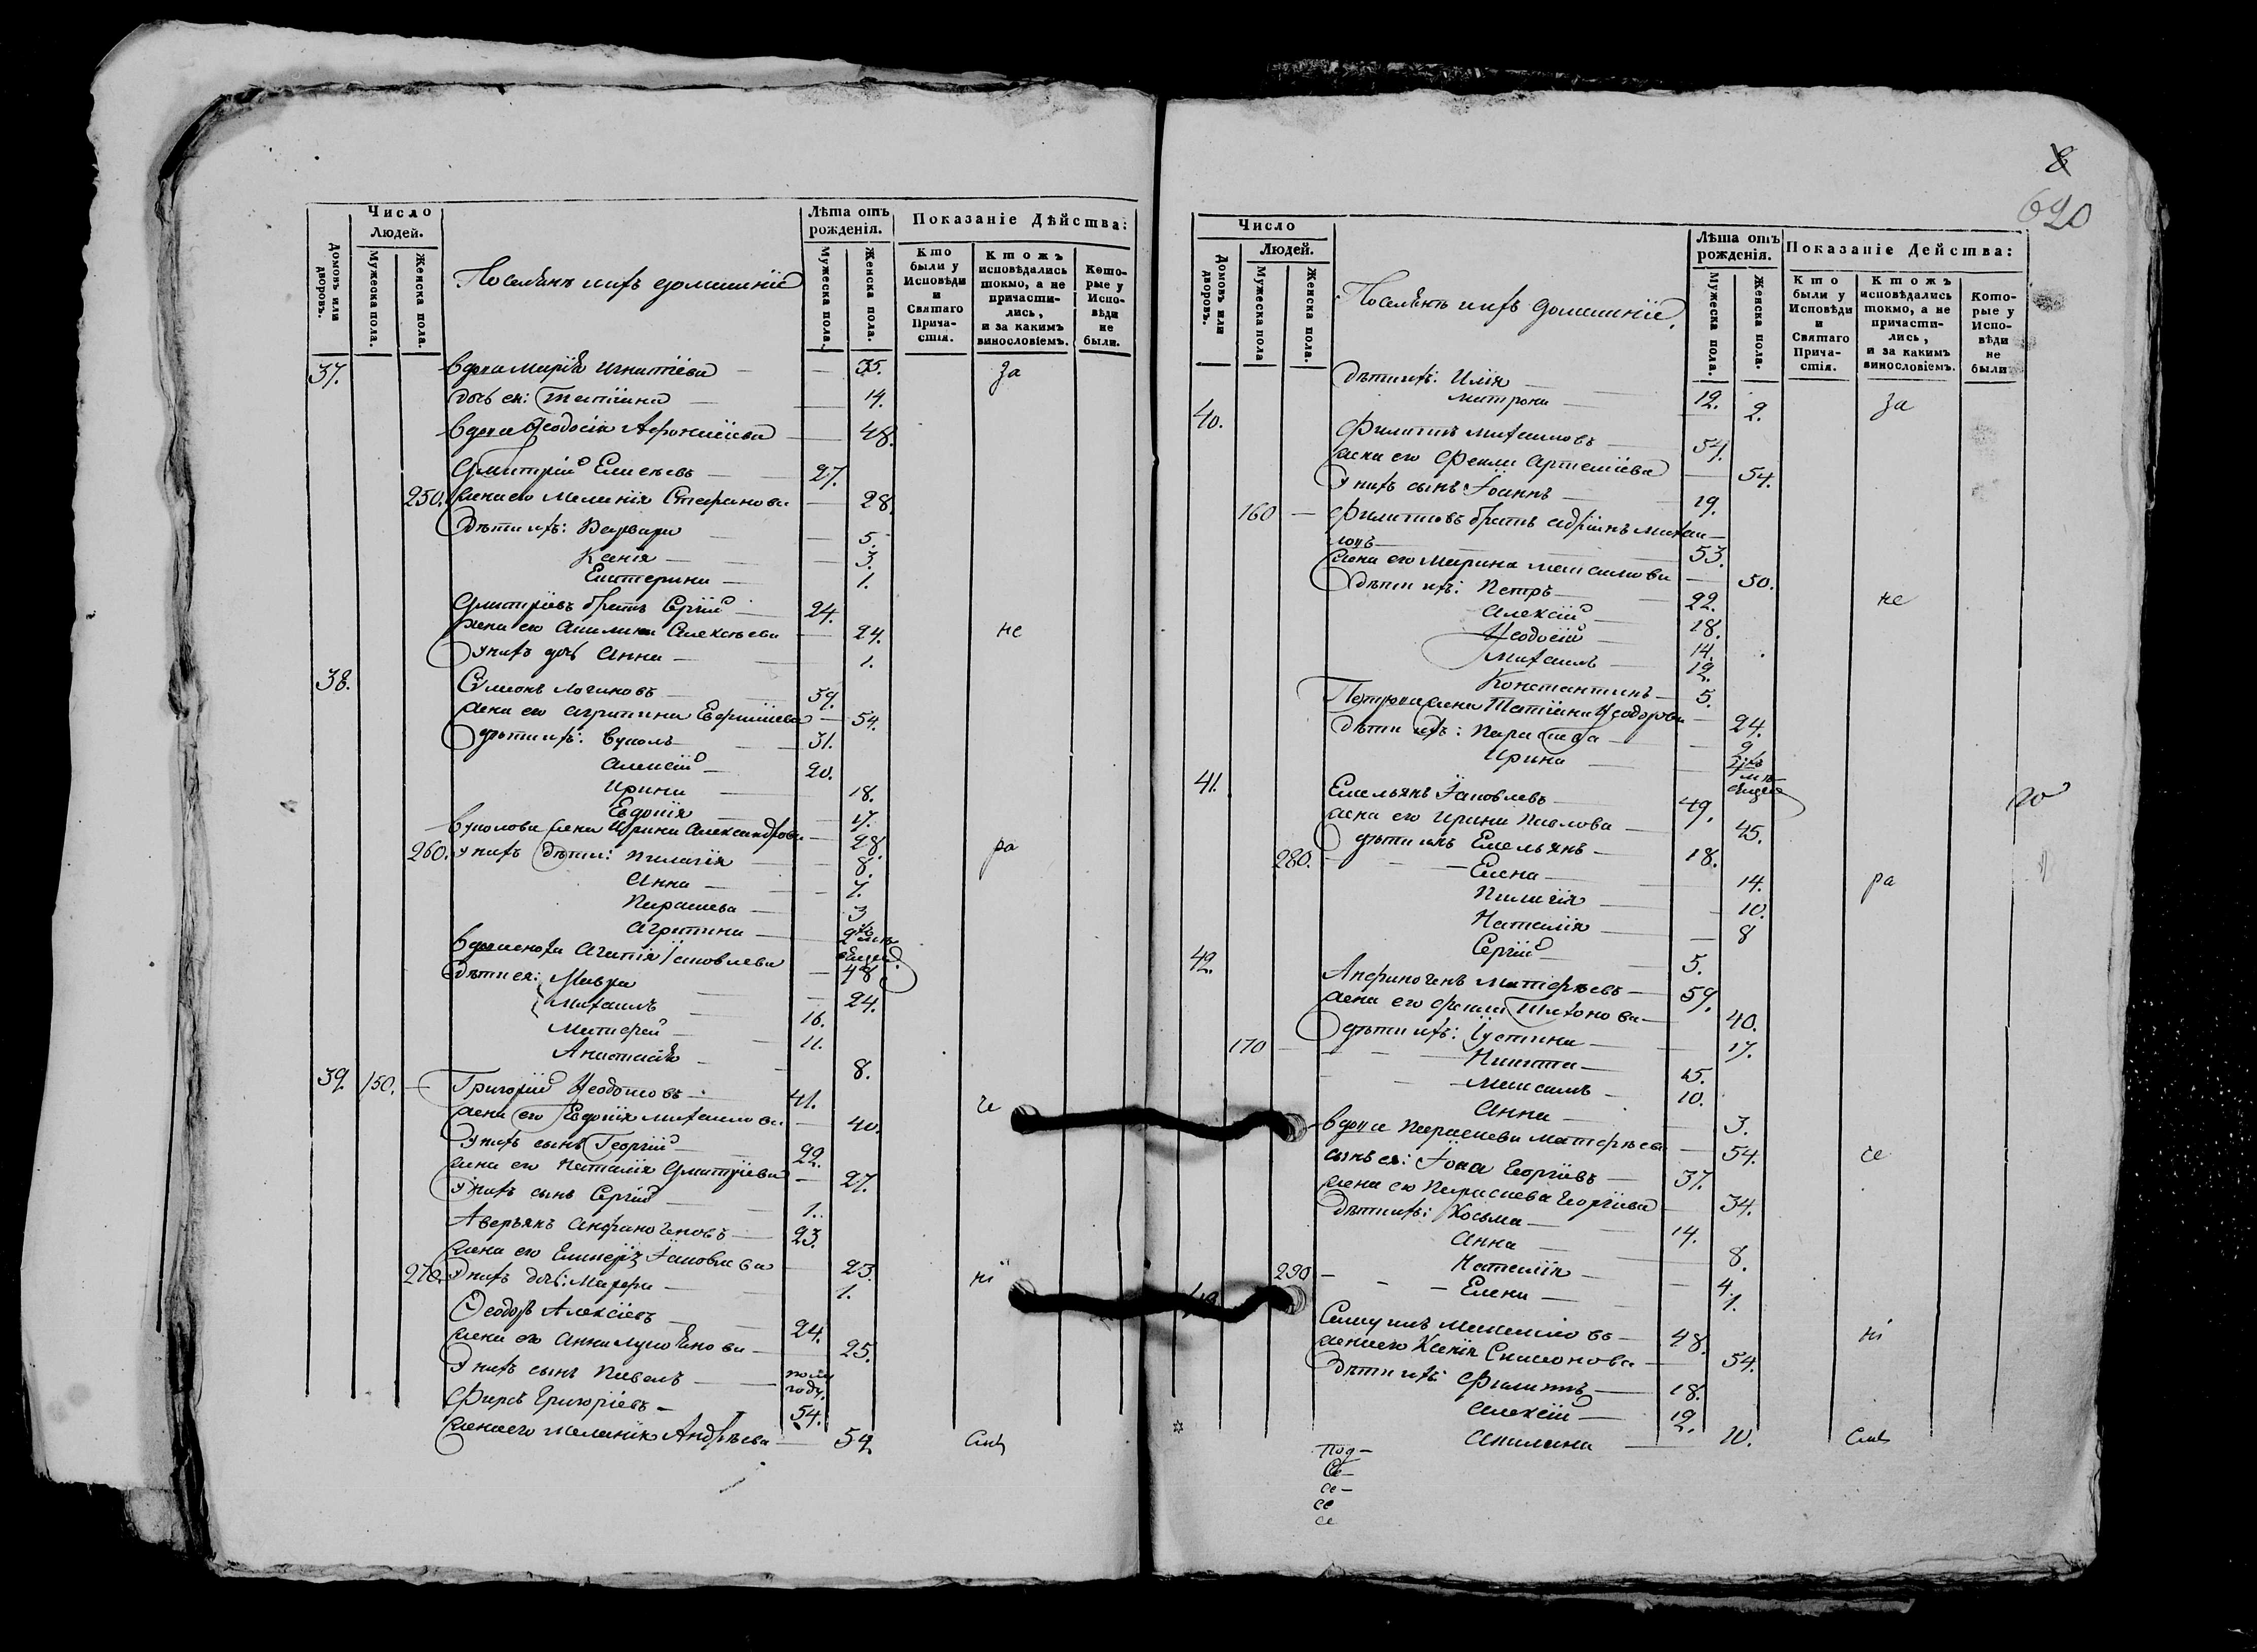 Число
Людей.
Домовъ или дворовъ.
Мужеска пола.
Женска пола.
Поселянъ ихъ домашніе
Лѣта отъ рожденія.
Мужеска пола.
Женска пола.
Показаніе Дѣйства:
Кто были у Исповѣди и Святаго Причастія.
Ктожъ исповѣдались токмо, а не причастились, и за какимъ винословіемъ.
Которые у Исповѣди не были.
37. вдова Марія Игнатіева — 35. за
дочь ея: Татіана — 14.
вдова Феодосія Афонасіева — 48.
Дмитрій Елисѣевъ — 27.
250. жена его Меланія Стефанова — 28.
Дѣти ихъ: Варвара — 5.
Ксенія — 3.
Екатерина — 1.
Дмитріевъ братъ Сергій — 24.
жена его Акилина Алексѣева — 24. не
у нихъ дочь Анна — 1.
38. Симеонъ Логиновъ — 59.
жена его Агрипина — 54.
дѣти ихъ: Вуколъ — 31.
Алексій — 20.
Ирина — 18.
Евдокія — 17.
Вуколова жена Ирина Александрова — 28. ра
260. у нихъ дѣти: Пелагія — 8.
Анна — 7.
Параскева — 3
Агрипина —
Іаковлева — 48
Дѣти ея: Мавра — 24.
Михаилъ — 16.
Матфей — 11.
Анастасія — 8.
39. 150. — Григорій Феодотовъ — 41.
жена его Евдокія Михаилова — 40.
у нихъ сынъ Георгій — 22.
жена его Наталія Дмитріева — 27.
у нихъ сынъ Сергій — 1.
Аверьянъ Анфиногеновъ — 23.
жена его Іаковлева — 23.
270. у нихъ дочь: Марфа — 1. ні
Феодоръ Алексіевъ — 24.
жена его Анна — 25.
у нихъ сынъ Павелъ — полъ году.
Фирсъ Григоріевъ — 54.
жена его Меланія Андрѣева — 59.
8
620
Число
Людей.
Домовъ или дворовъ.
Мужеска пола
Женска пола.
Поселянъ ихъ домашніе.
Лѣта отъ рожденія.
Мужеска пола.
Женска пола.
Показаніе Действа:
Кто были у Исповѣди и Святаго Причастія.
Ктожъ исповѣдались токмо, а не причастились, и за какимъ винословіемъ.
Которые у Исповѣди не были
дѣти ихъ: Илія — 12. за
Матрона — 2.
40. Филиппъ Михаиловъ — 54.
жена его Фекла Артеміева — 54.
у нихъ сынъ Іоаннъ — 19.
160 — Филиповъ братъ Адріанъ Михаи-
ловъ — 53.
жена его Марина Максимова — 50.
дѣти ихъ: Петръ — 22. не
Алексій — 18.
Феодосій — 14.
Михаилъ — 12.
Константинъ — 5.
Петрова жена Татіана Феодорова — 24.
дѣти ихъ: Параскева — 2.
Ирина —
41. Емельянъ Іаковлевъ — 49.
жена его Ирина Павлова — 45.
дѣти ихъ Емельянъ — 18.
280. — Елена — 14. ра
Пелагія — 10.
Наталія — 8
Сергій — 5.
42. Анфиногенъ Матфѣевъ — 59.
жена его Фекла Тихонова — 40.
дѣти ихъ: Іустина — 17.
170 — Никита — 15.
Максимъ — 10.
Анна — 3.
вдова Параскева Матфѣева — 54. се
сынъ ея: Іона Георгіевъ — 37.
жена его Параскева Георгіева — 34.
Дѣти ихъ: Косьма — 14.
Анна — 8.
Наталія — 4.
290 — Елена — 1.
Самуилъ — 48. ні
жена его Ксенія Симеонова — 54.
Дѣти ихъ: Филиппъ — 18.
Алексій — 12.
Акилина — 10.
под-
се-
се
се